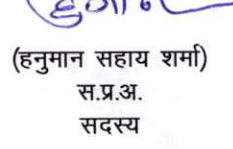 (हनुमान सहाय शर्मा)
स.प्र.अ.
सदस्य